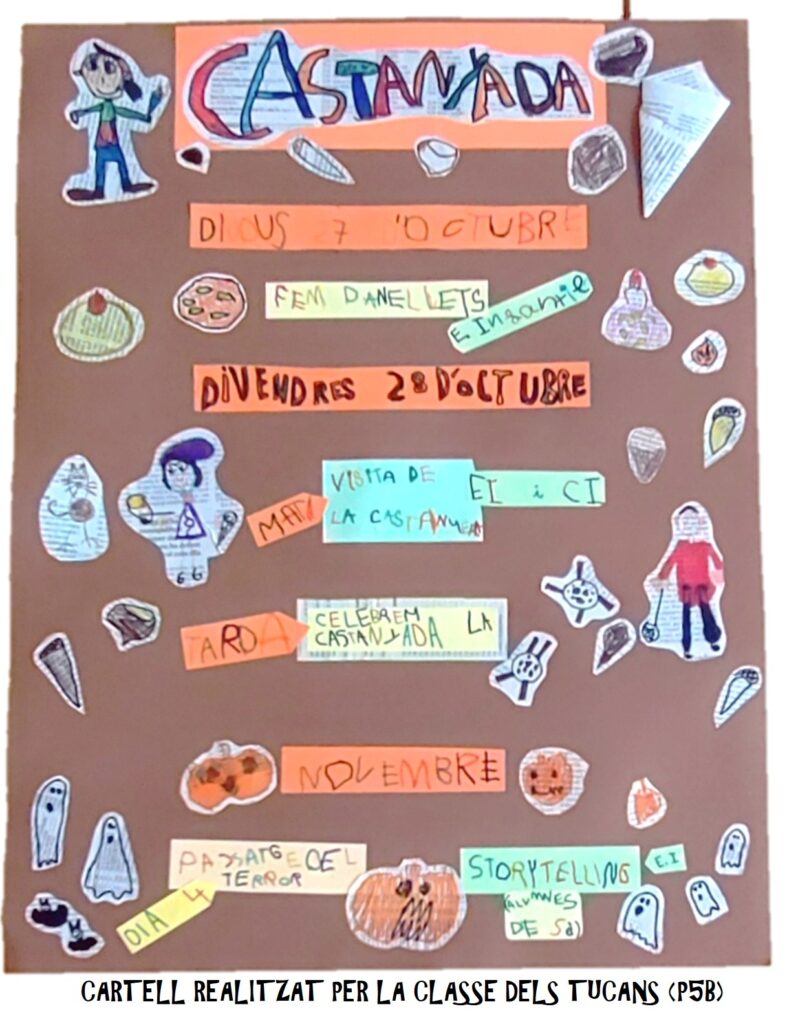 CASTANYADA
DIJOUS 27 D'OCTUBRE
FEM PANELLETS
E Infantil
DIVENDRES 28 D'OCTUBRE
MATÍ
VISITA DE
LA CASTANYERA
EI i CI
TARDA
CELEBREM
CASTANYADA LA
NOVEMBRE
PASSATGE DEL
TERROR
DIA 4
STORYTELLING
E.I
(ALUMNES
DE 5è)
CARTELL REALITZAT PER LA CLASSE DELS TUCANS (P5B)